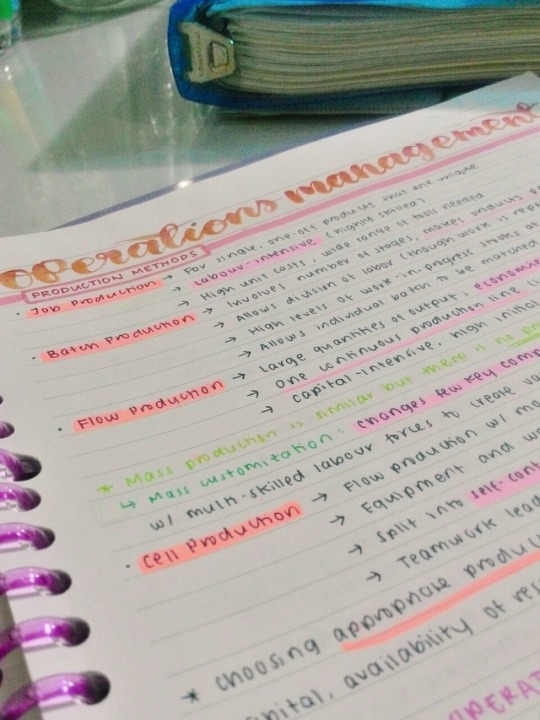 operations management
PRODUCTION METHODS
· Job Production → For single, one-off products that are unique
→ Labour-intensive (highly skilled)
→ High unit costs, wide range of tools needed
· Batch Production → Involves number of stages, makes products
→ Allows division of labour (though work is
→ High levels of work-in-progress stocks at
→ Allows individual batch to be matched
· Flow Production → Large quantities of output, economies
→ One continuous production line
→ Capital-intensive, high initial
* Mass production is similar but there is no
↳ Mass customization: changes few key
w/ multi-skilled labour forces to create
· Cell Production → Flow production w/
→ Equipment and
→ Split into self-
→ Teamwork
* Choosing appropriate
availability of